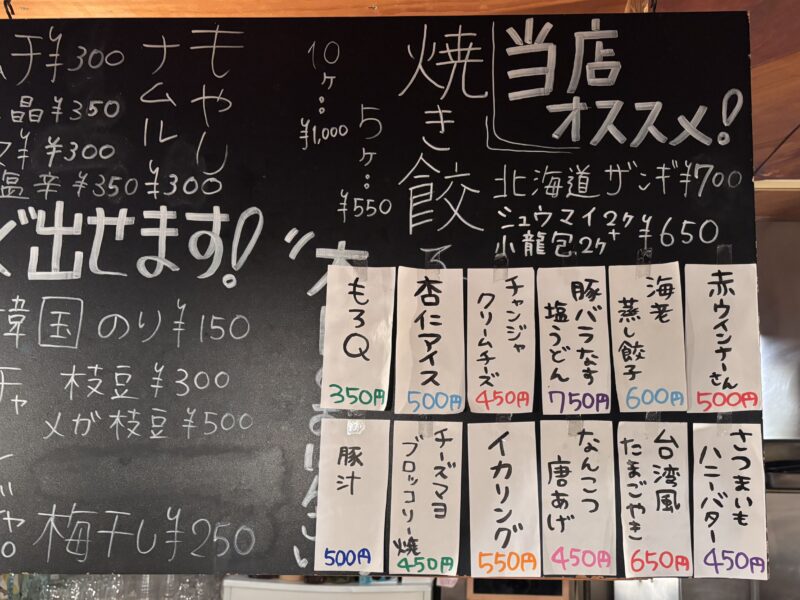 当店
オススメ!
北海道 ザンギ ¥700
シュウマイ2ケ+
小龍包2ケ ¥650
焼き餃子
5ヶ: ¥550
10ヶ: ¥1,000
もやし
ナムル
¥300
チ ¥300
晶 ¥350
¥300
塩辛 ¥350
ぐ出せます!
韓国のり ¥150
枝豆 ¥300
メガ枝豆 ¥500
梅干し ¥250
赤ウインナーさん
500円
海老
蒸し餃子
600円
豚バラなす
塩うどん
750円
チャンジャ
クリームチーズ
450円
杏仁アイス
500円
もろQ
350円
さつまいも
ハニーバター
450円
台湾風
たまごやき
650円
なんこつ
唐あげ
450円
イカリング
550円
チーズマヨ
ブロッコリー焼
450円
豚汁
500円